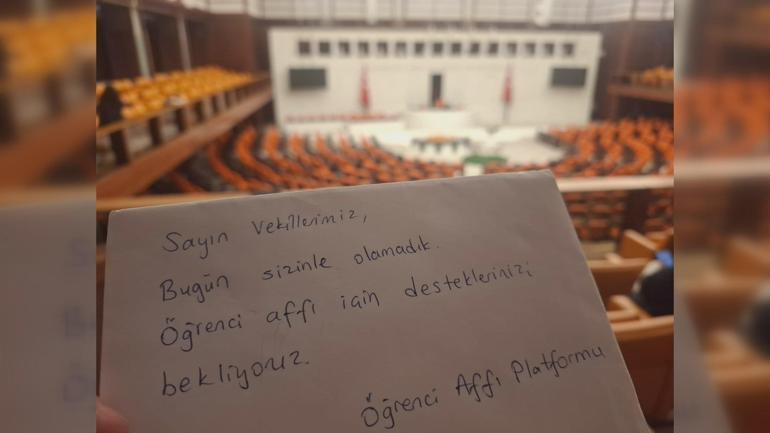 Sayın Vekillerimiz,
Bugün sizinle olamadık.
Öğrenci affı için desteklerinizi
bekliyoruz.
Öğrenci Affı Platformu